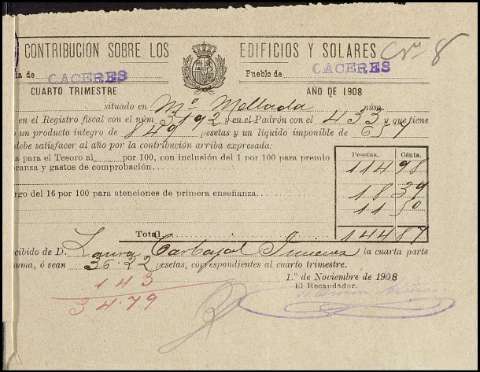 CONTRIBUCIÓN SOBRE LOS EDIFICIOS Y SOLARES
Nº 8
ia de CACERES Pueblo de CACERES
CUARTO TRIMESTRE AÑO DE 1908
situado en Mª Mellada núm.
en el Registro fiscal con el núm. 3192 ó en el Padrón con el 433 y que tiene
o un producto íntegro de 849 pesetas y un líquido imponible de 637
debe satisfacer al año por la contribución arriba expresada:
Pesetas. Cénts.
ta para el Tesoro al por 100, con inclusión del 1 por 100 para premio
ranza y gastos de comprobación. 114 98
argo del 16 por 100 para atenciones de primera enseñanza. 18 39
11 50
Total 144 87
ecibido de D. Laura Carbajal Jimenez la cuarta parte
suma, ó sean 36 22 pesetas, correspondientes al cuarto trimestre.
1 43
34.79
1.º de Noviembre de 1908
El Recaudador,